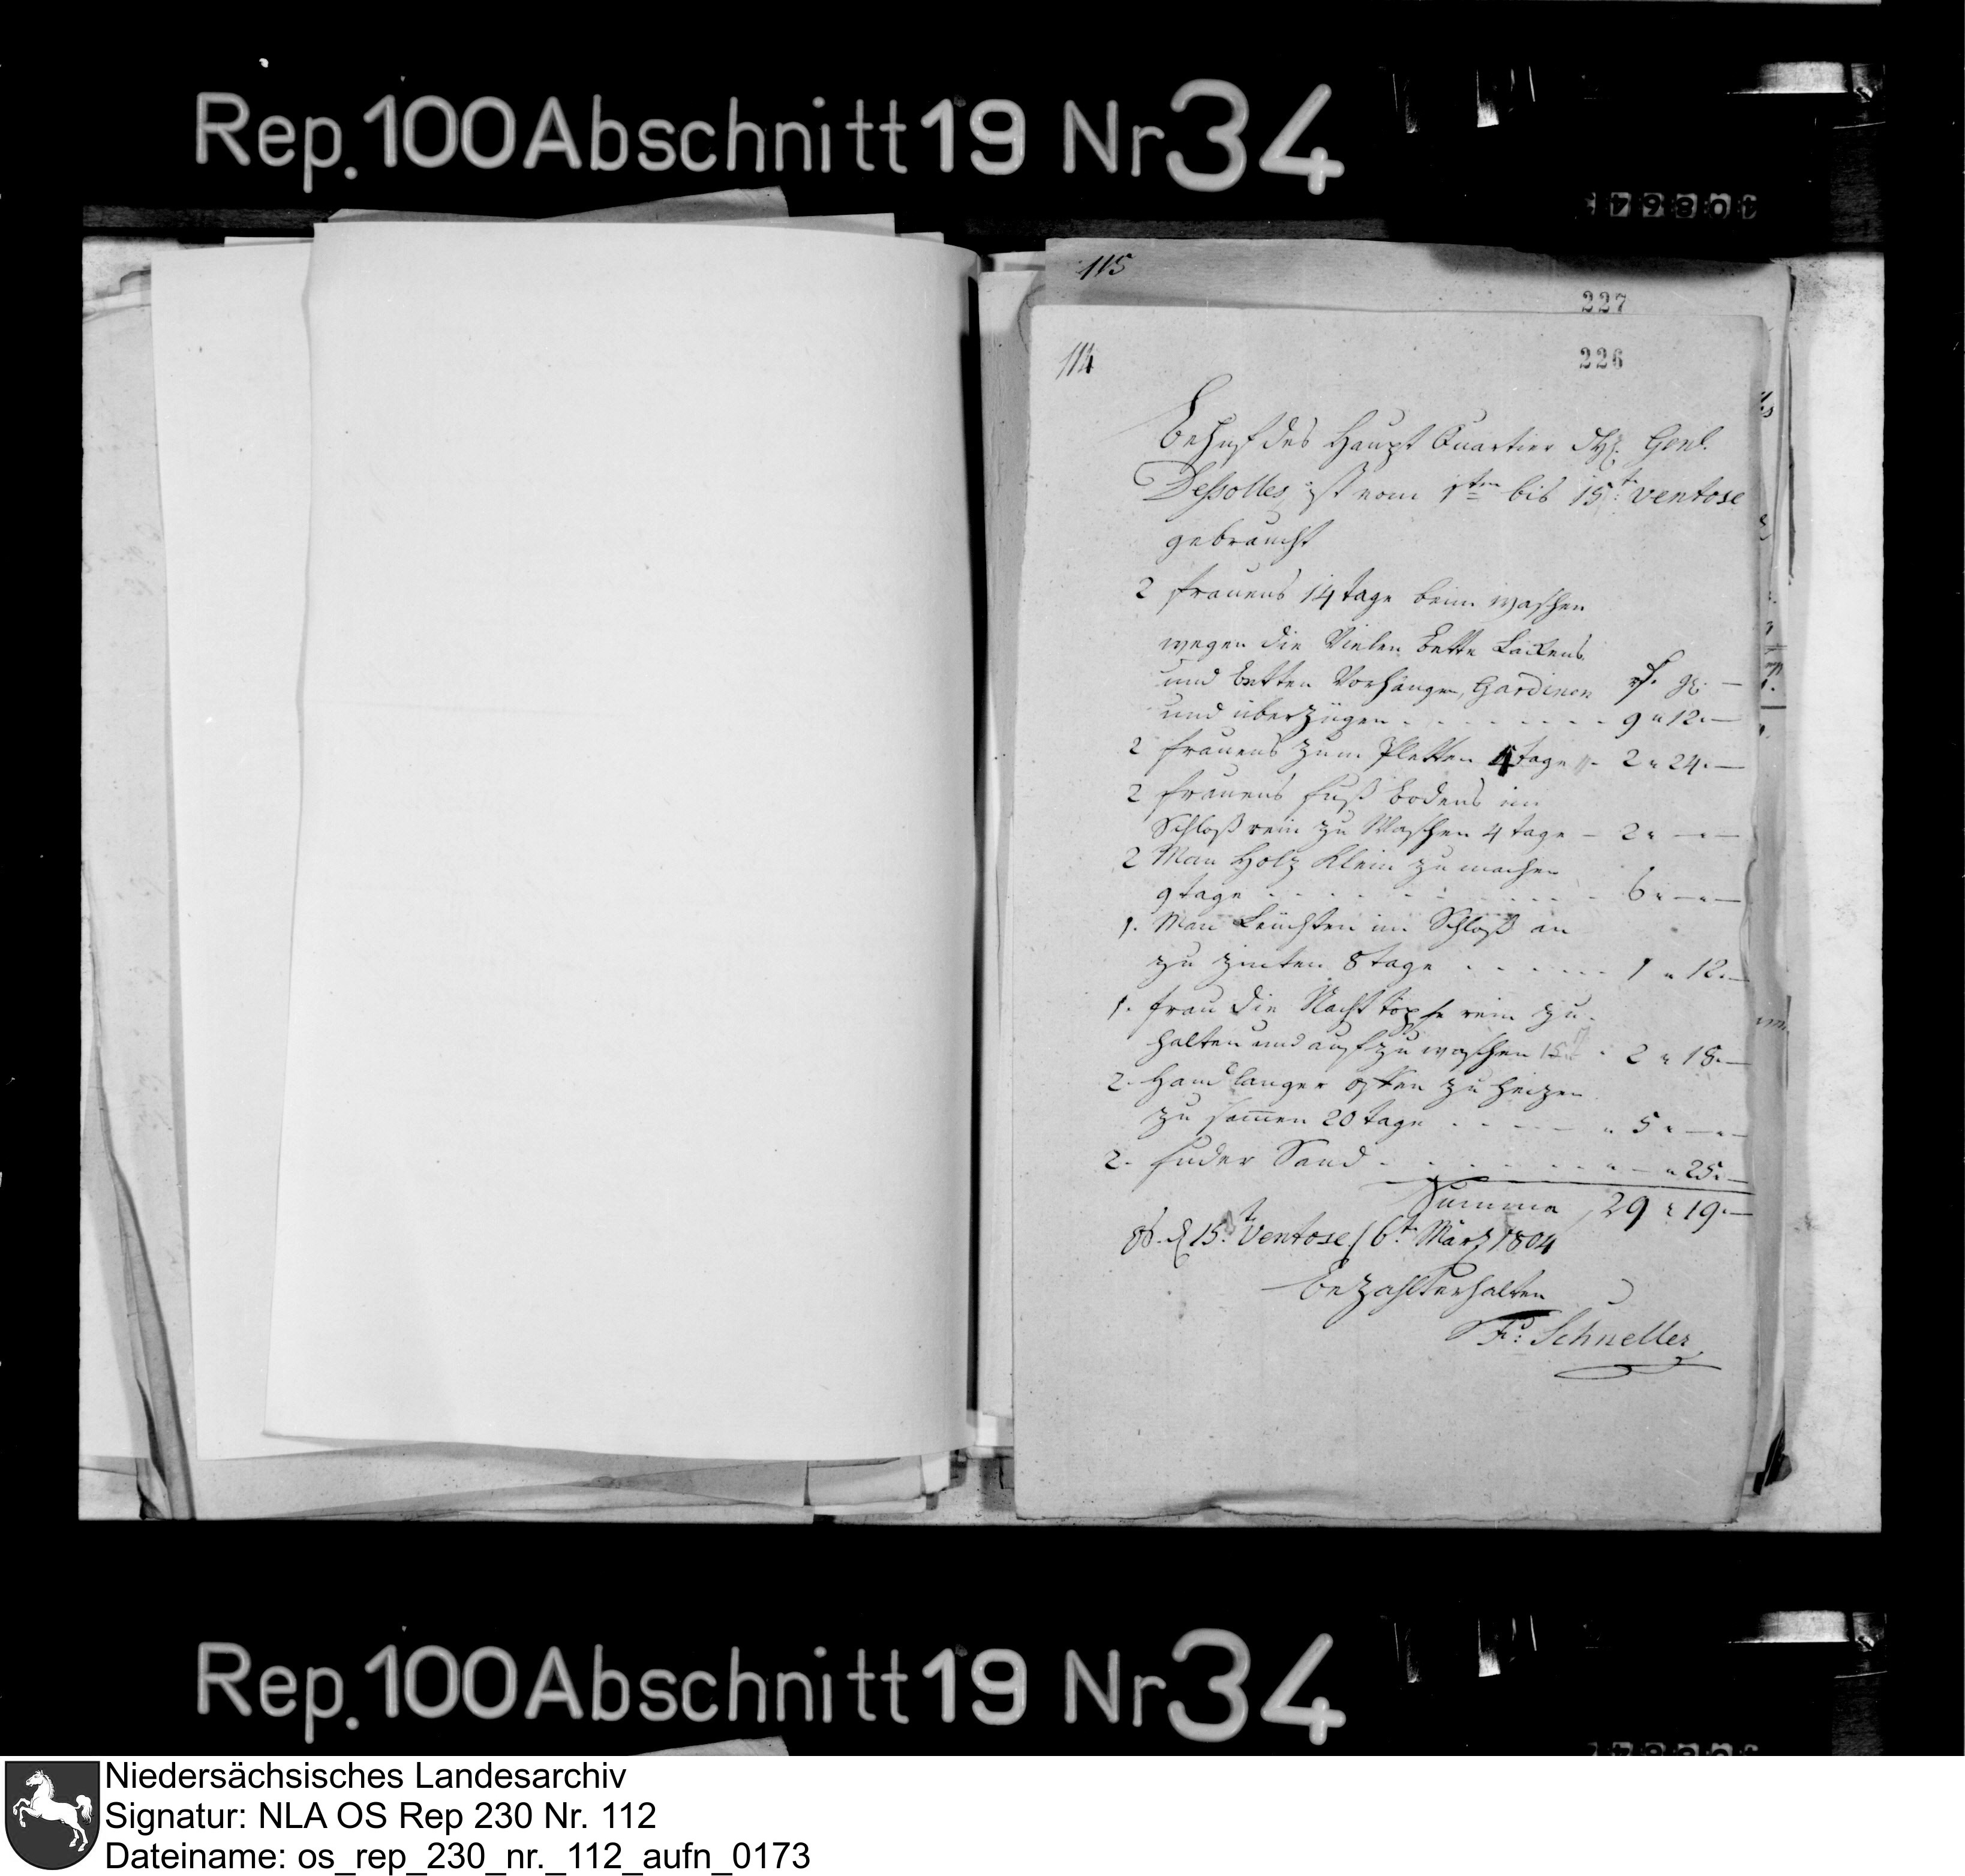 Rep. 100 Abschnitt 19 Nr 34
40864
115
227
114
226
Behuf des Haupt Quartier Genl.
Dessolles ist vom 1ten bis 15t. ventose
gebraucht
2 frauens 14 tage beim waschen
wegen die Vielen bette Lackens
und betten Vorhängen, Gardinen
und überzügen - - - 9 " 12 . —
2 frauens zum Pletten 4 tage - 2 " 24 . —
2 frauens fuß bodens im
Schloß rein zu Waschen 4 tage - 2 " — " —
2 Man Holz Klein zu machen
9 tage - - - 6 " — " —
1. Man Leuchten im Schloß an
zu zünten 8 tage - - - 1 " 12 . —
1. frau die Nacht töpfe rein zu
halten und auf zu waschen 15 - 2 " 18 . —
2. Handlanger offen zu heizen
zu samen 20 tage - - - 5 " — " —
2. fuder Sand - - - " — " 25 . —
Summa 29 " 19 . —
15t. Ventose / 6t. März 1804
bezahlt erhalten
Fd: Schneller
Rep. 100 Abschnitt 19 Nr 34
Niedersächsisches Landesarchiv
Signatur: NLA OS Rep 230 Nr. 112
Dateiname: os_rep_230_nr._112_aufn_0173